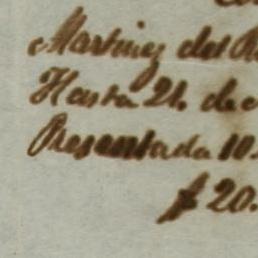 Martinez del R
Hasta 21. de
Presentada 10.
$ 20.